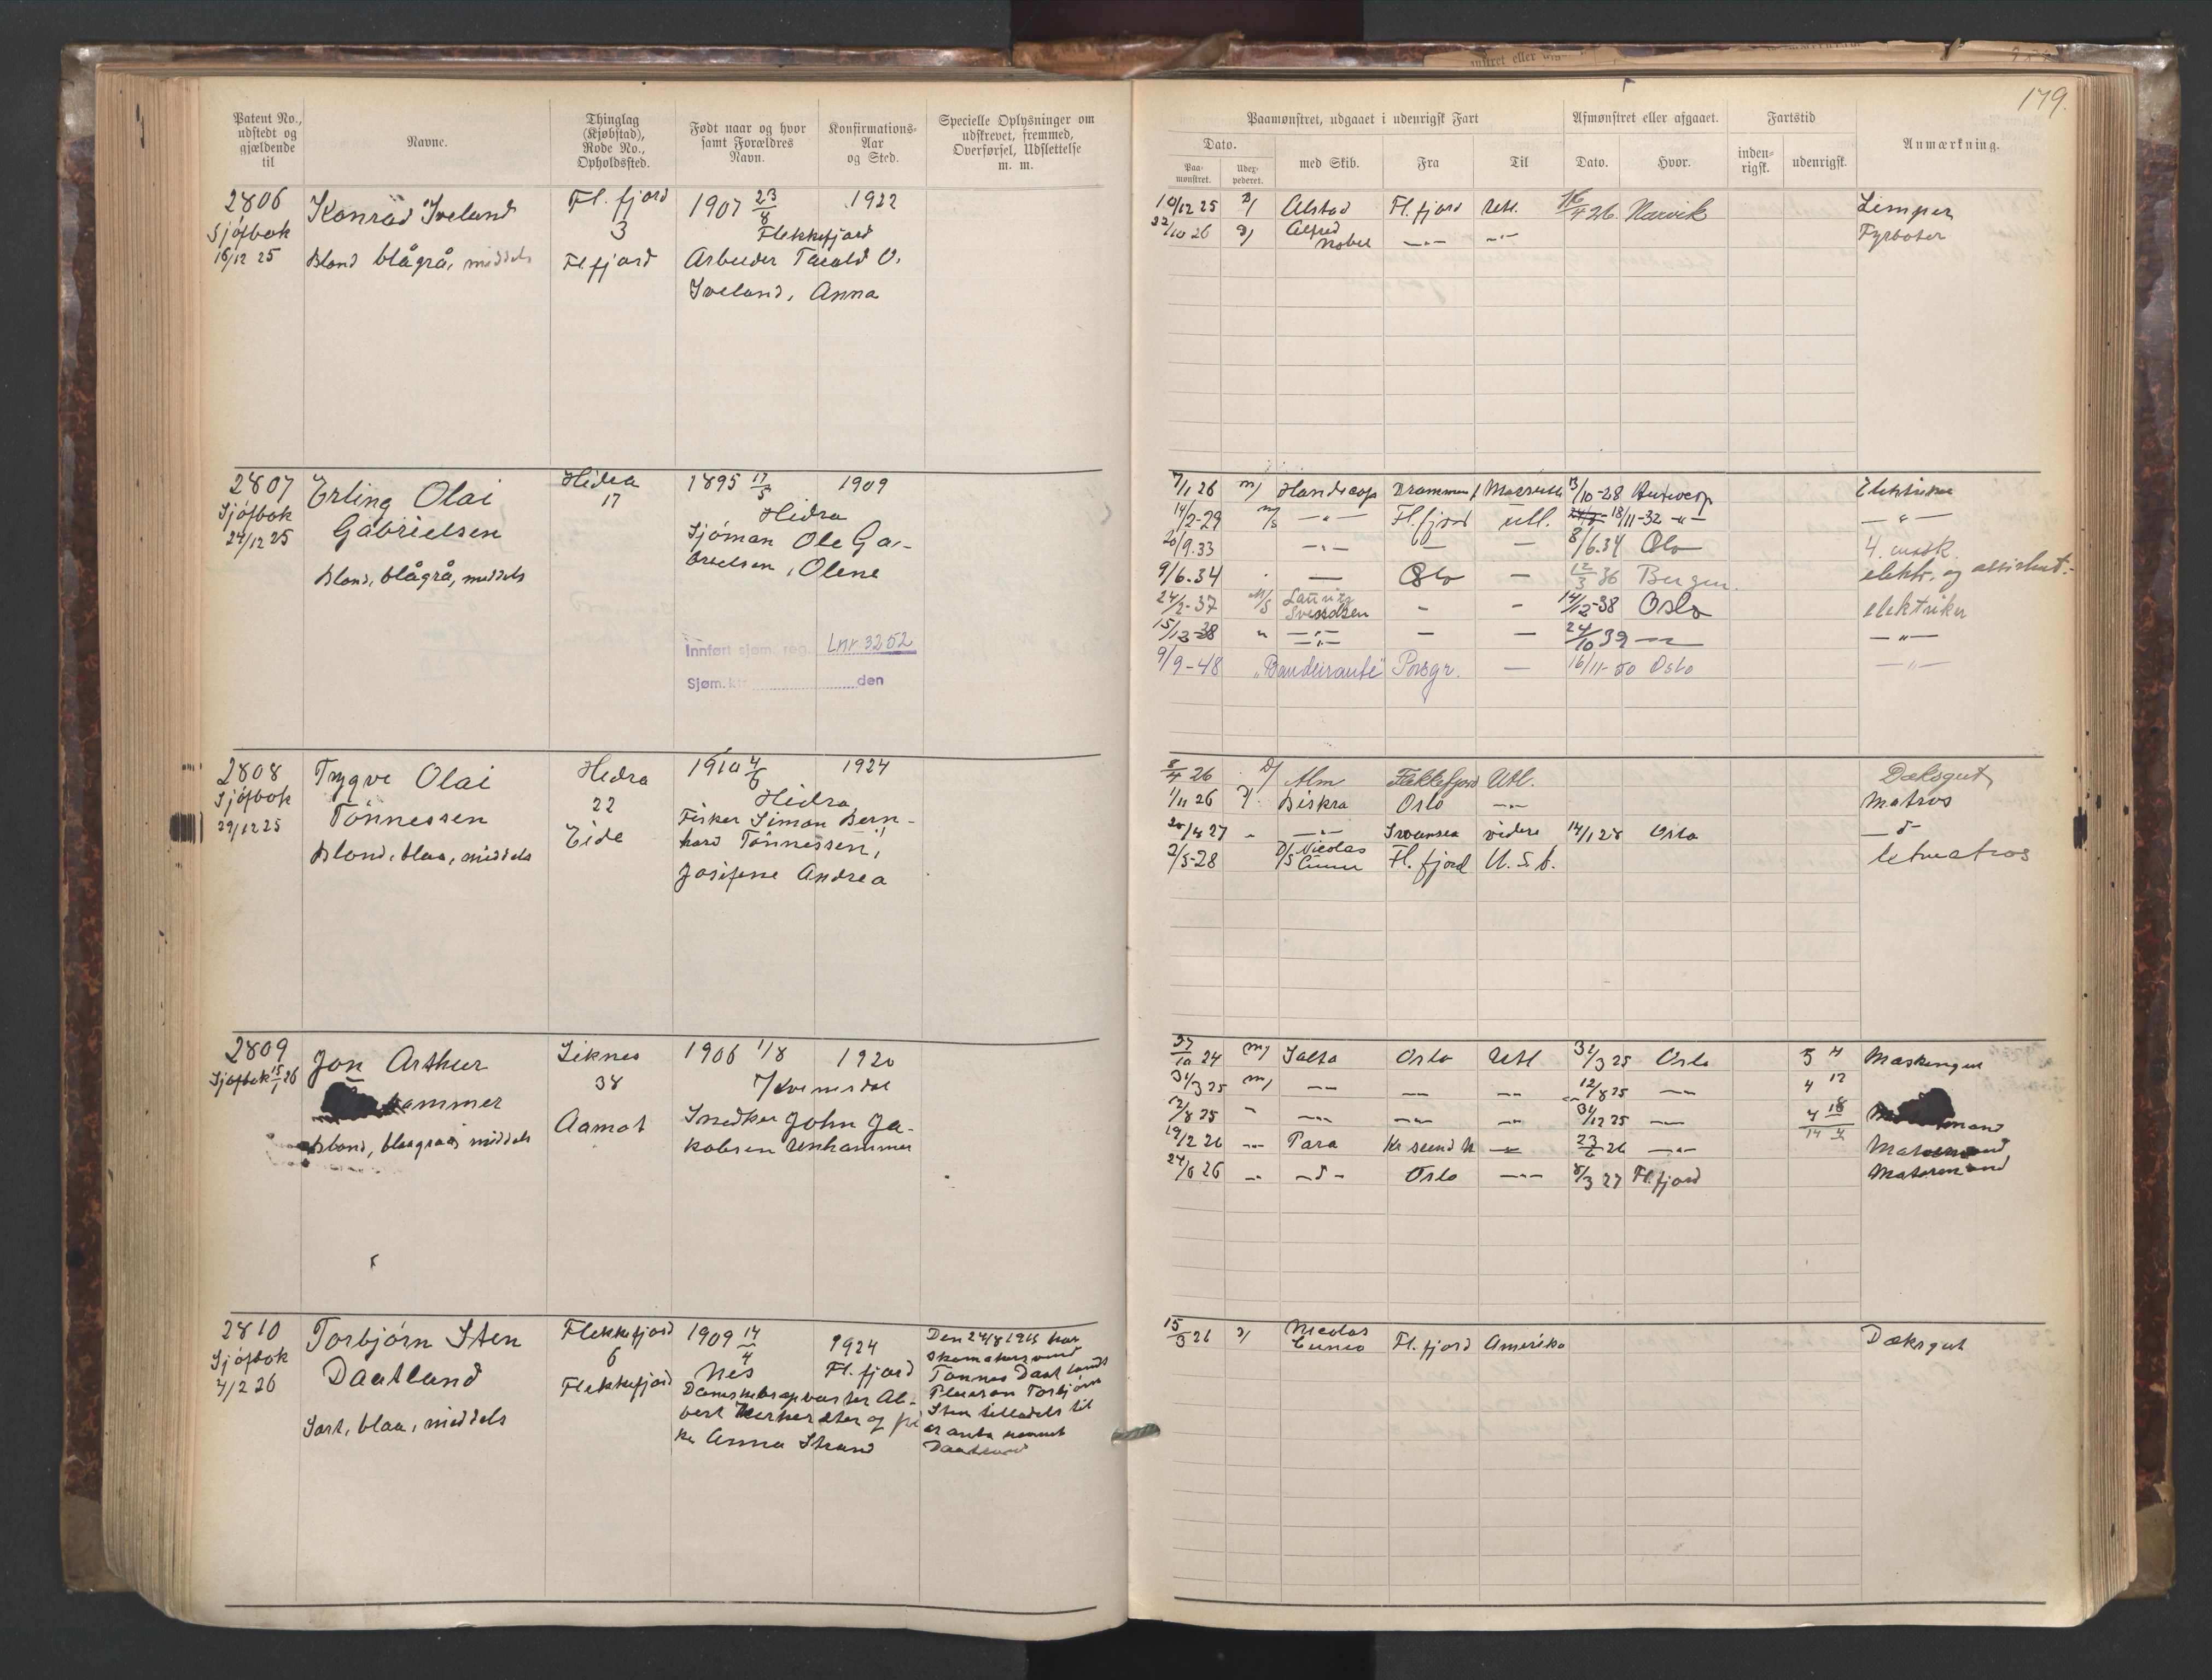 179.
Patent No., udstedt og gjældende til
Navne.
Thinglag (Kjøbstad), Rode No., Opholdssted.
Født naar og hvor samt Forældres Navn.
Konfirmations- Aar og Sted.
Specielle Oplysninger om udskrevet, fremmed, Overførsel, Udslettelse m. m.
Paamønstret, udgaaet i udenrigsk Fart
Afmønstret eller afgaaet.
Fartstid
Anmærkning.
Dato.
Paa- mønstret.
Udex- pederet.
med Skib.
Fra
Til
Dato.
Hvor.
inden- rigsk.
udenrigsk.
2806
Sjöfbok
16/12 25
Konrad Iveland
Blond blågrå, middels
Fl. fjord
3
Fl fjord
1907 23/8
1922
Flekkefjord
Arbeider Tarald O.
Iveland, Anna
10/12 25 D/ Alstad Fl. fjord Utl. 26. Narvik Limper
/10 26 D/ Alfred Nobel —"— —"— Fyrböter
2807
Sjöfbok
24/12 25
Erling Olai
Gabrielsen
Blond, blågrå, middels
Hidra
17
1895 17/5
1909
Hidra
Sjöman Ole Ga-
brielsen, Olene
Innført sjøm. reg. Lnr. 3252
Sjøm.ktr. den
7/1 26 m/ Handicap Drammen Marseille 13/10-28 Antwerp Elektriker
14/2-29 m/s —"— Fl. fjord utl. 18/11-32 —"— —"—
20/9.33 —"— — — 8/6.34 Oslo 4. mask.
9/6.34 — Oslo — 12/3 36 Bergen. elektr. og assistent.
24/2-37 M/S Lauritz Svendsen - - 14/12-38 Oslo elektriker
15/12-38 " —"— — — 24/10 39 —"— —"—
9/9-48 "Bandeirante" Porsgr. — 16/11-50 Oslo —"—
2808
Sjöfbok
29/12 25
Trygve Olai
Tönnessen
Blond, blaa, middels
Hidra
22
Eide
1910 4/6
1924
Hidra
Fisker Simon Bern-
hard Tönnessen,
Josefine Andrea
8/4 26 D/ Alm Flekkefjord Utl. Dæksgut
1/11 26 D/ Biskra Oslo —"— Matros
20/4 27 " —"— Swansea videre 14/1 28 Oslo —d—
2/5-28 D/S Nicolas Cuneo Fl. fjord U. S. A. letmatros
2809
Sjöfbok 15/1 26
Jon Arthur
hammer
Blond, blaagraa, middels
Liknes
38
Aamot
1906 1/8
1920
Kvinesdal
Snedker John Ja-
kobsen Uenhammer
27/10 24 m/ Salta Oslo Utl 31/3 25 Oslo 5 4 Maskingut
31/3 25 m/ —"— —"— —"— 12/8 25 —"— 4 12
12/8 25 " —"— —"— —"— 31/12 25 —"— 4 18
14 4
19/2 26 —"— Para Kr sund N —"— 23/6 26 —"— Motormand
24/6 26 —"— —d— Oslo —"— 8/3 27 Fl. fjord Motormand
2810
Sjöfbok
4/2 26
Torbjörn Sten
Daatland
Sort, blaa, middels
Flekkefjord
6
Flekkefjord
1909 14/4
Nes
1924
Fl. fjord
Den 24/8 1915 har
skomakersvend
Tönnes Daatlands
Pleiesön Torbjörn
Sten tilladels til
at anta navnet
Daatland
15/3 26 D/ Nicolas Cuneo Fl. fjord Amerika Dæksgut